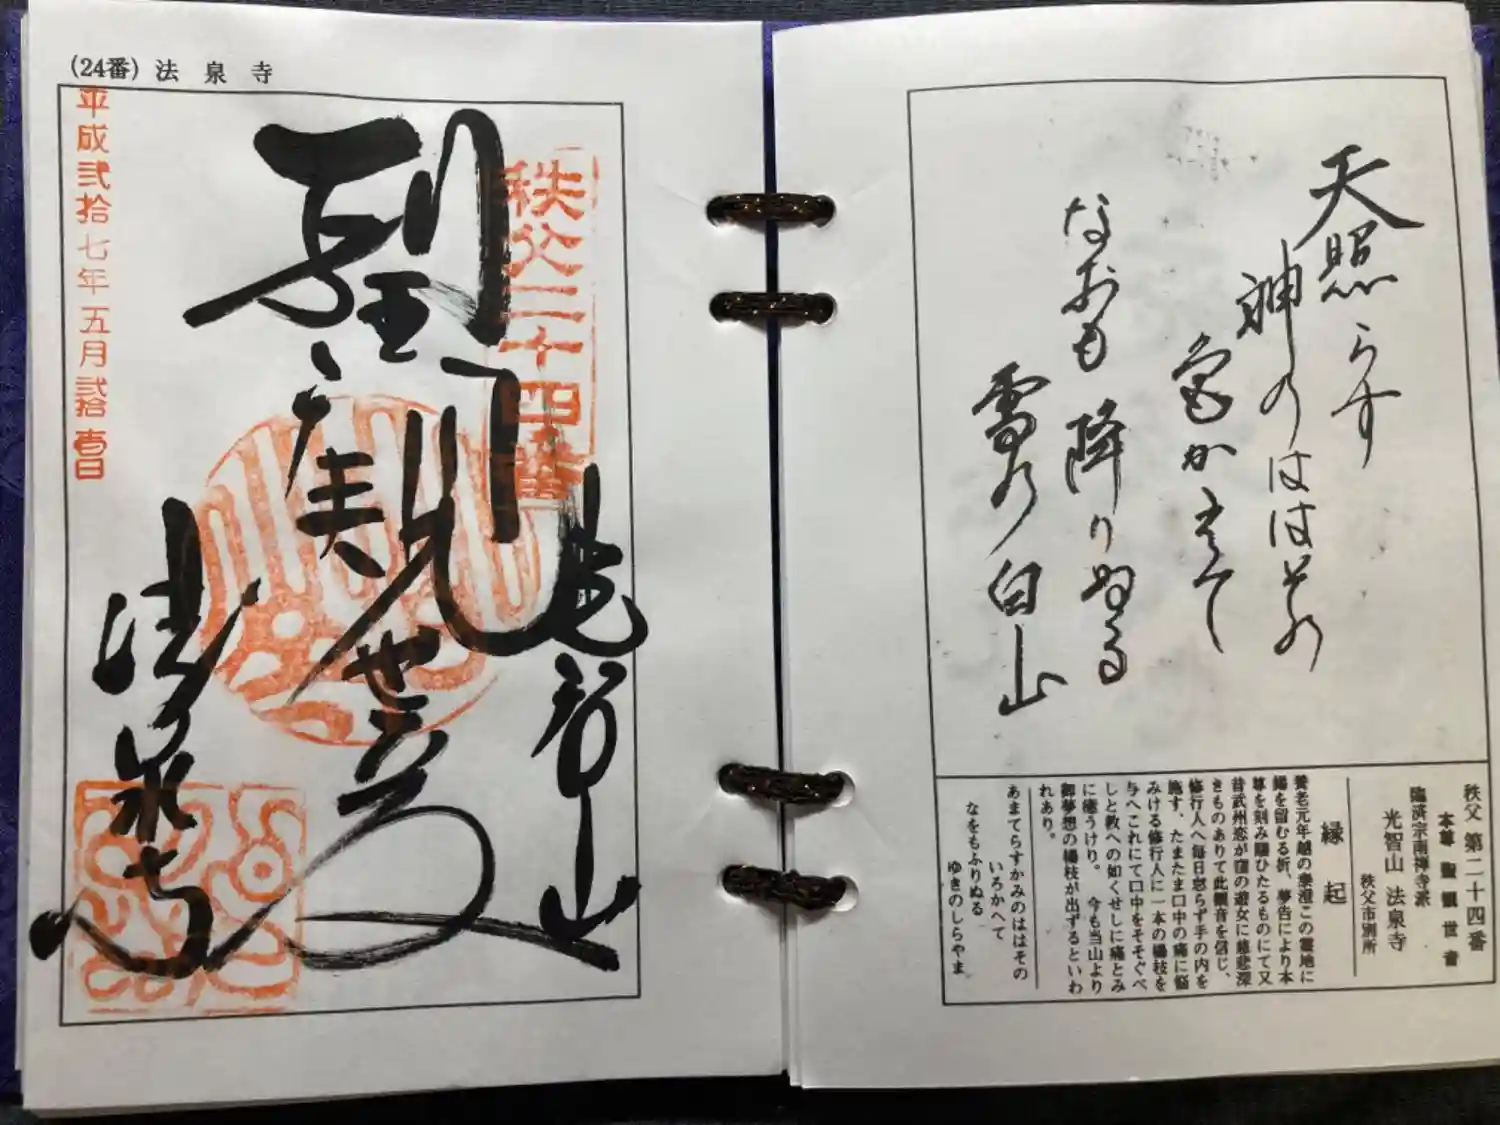 (24番) 法泉寺
平成弐拾七年五月弐拾壱日
秩父二十四番
光智山
聖観世音
法泉寺
天照らす
神のははその
色かえて
なおも降りぬる
雪の白山
秩父 第二十四番
本尊 聖観世音
臨済宗南禅寺派
光智山 法泉寺
秩父市別所
縁起
養老元年越の泰澄この霊地に
錫を留むる折、夢告により本
尊を刻み随ひたるものにて又
昔武州恋が窪の遊女に慈悲深
きものありて此観音を信じ、
修行人へ毎日怠らず手の内を
施す、たまたま口中の痛に悩
みける修行人に一本の楊枝を
与へこれにて口中をそそぐべ
しと教への如くせしに痛とみ
に癒うけり。今も当山より
御夢想の楊枝が出ずるといわ
れあり。
あまてらすかみのははその
いろかへて
なをもふりぬる
ゆきのしらやま